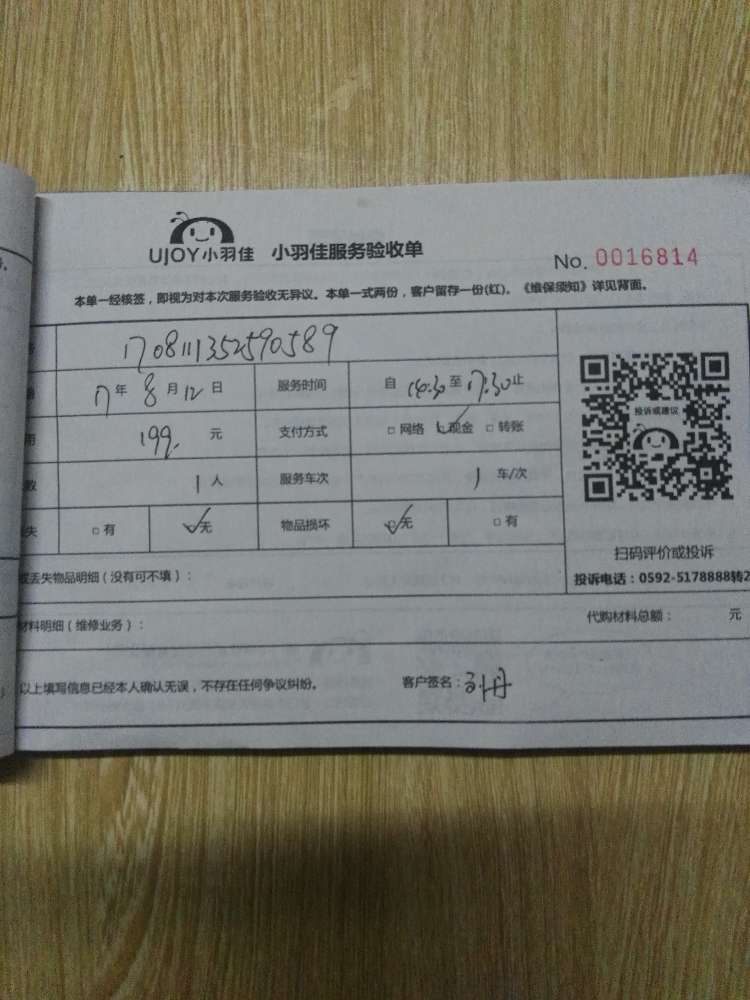 UJOY小羽佳 小羽佳服务验收单 No. 0016814
本单一经核签，即视为对本次服务验收无异议。本单一式两份，客户留存一份(红)。《维保须知》详见背面。
170811135259058​9
17年8月12日 服务时间 自14:30至17:30止
用 199. 元 支付方式 □网络 ☑现金 □转账
数 1人 服务车次 1车/次
失 □有 ☑无 物品损坏 ☑无 □有
投诉或建议
扫码评价或投诉
投诉电话：0592-5178888转2
或丢失物品明细（没有可不填）：
材料明细（维修业务）： 代购材料总额： 元
以上填写信息已经本人确认无误，不存在任何争议纠纷。 客户签名：